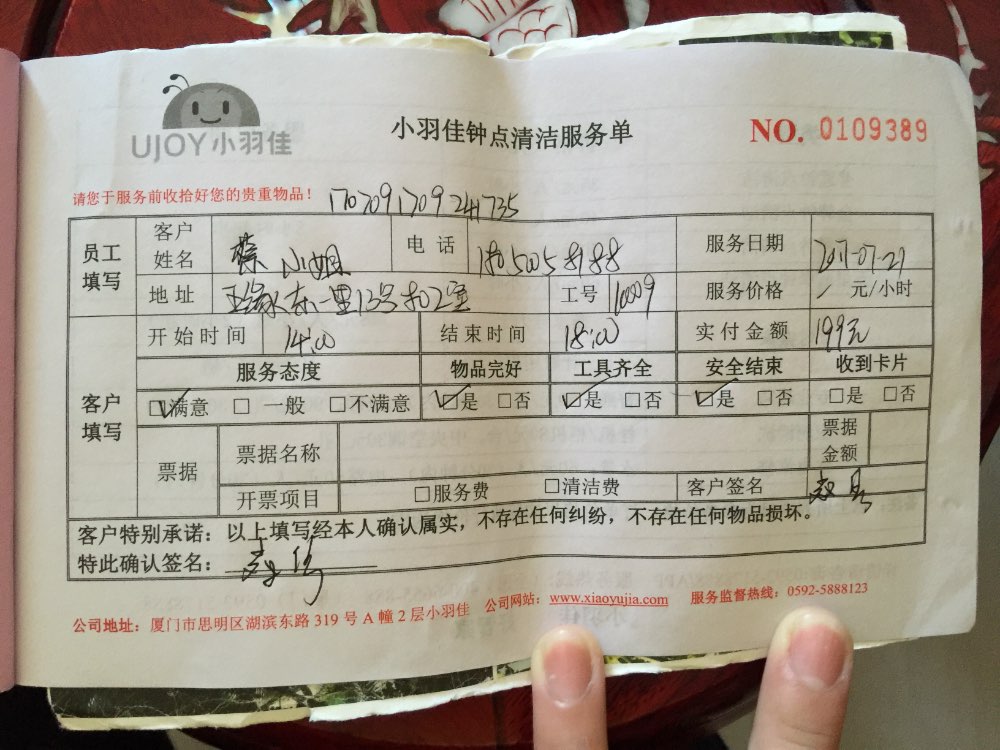 UJOY小羽佳
小羽佳钟点清洁服务单
NO. 0109389
请您于服务前收拾好您的贵重物品！
1707091709241735
员工填写 客户姓名 小姐 电话 18050058188 服务日期 2017-07-21
地址 东二里13号802室 工号 10009 服务价格 / 元/小时
客户填写 开始时间 14:00 结束时间 18:00 实付金额 199元
服务态度 物品完好 工具齐全 安全结束 收到卡片
☑满意 □一般 □不满意 ☑是 □否 ☑是 □否 ☑是 □否 □是 □否
票据 票据名称 票据金额
开票项目 □服务费 □清洁费 客户签名
客户特别承诺：以上填写经本人确认属实，不存在任何纠纷，不存在任何物品损坏。
特此确认签名：
公司地址：厦门市思明区湖滨东路 319 号 A 幢 2 层小羽佳 公司网站：www.xiaoyujia.com 服务监督热线：0592-5888123